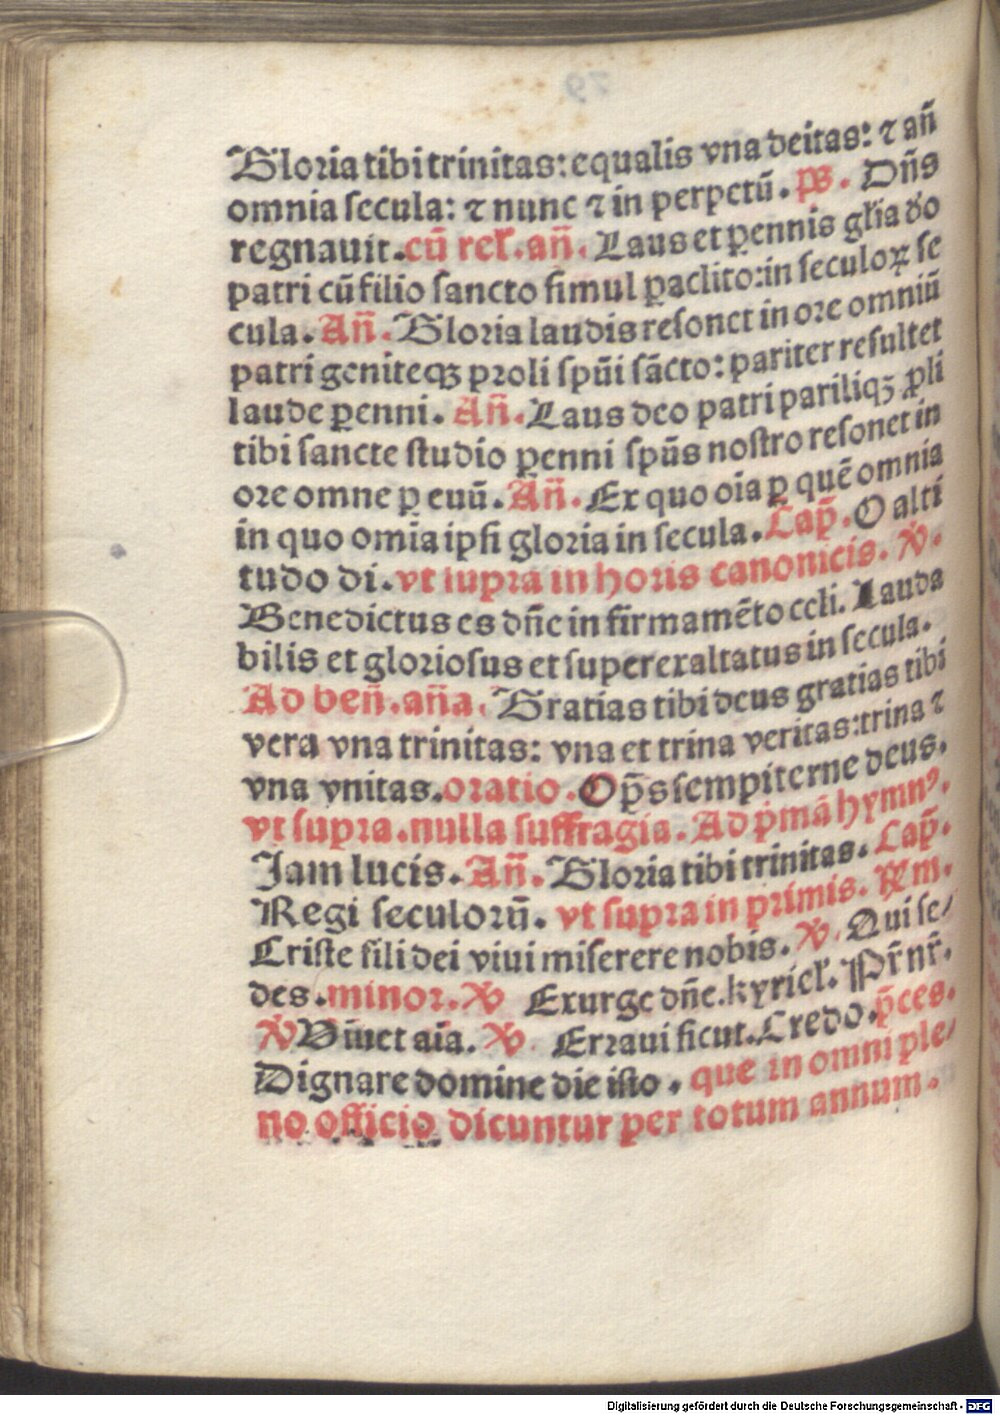 Gloria tibi trinitas: equalis vna deitas: ⁊ añ
omnia secula: ⁊ nunc ⁊ in perpetū. ps. Dñs
regnauit. cū rel̄. añ. Laus et ꝑennis gl̄ia deo
patri cū filio sancto simul ꝑaclito: in seculoꝝ se
cula. Añ. Gloria laudis resonet in ore omniū
patri geniteqꝫ proli spūi sācto: pariter resultet
laude ꝑenni. Añ. Laus deo patri pariliqꝫ ꝓli
tibi sancte studio ꝑenni spūs nostro resonet in
ore omne ꝑ euū. Añ. Ex quo oīa ꝑ quē omnia
in quo omīa ipsi gloria in secula. Cap̄. O alti
tudo di. vt supra in horis canonicis. ℣.
Benedictus es dñe in firmamēto celi. Lauda
bilis et gloriosus et superexaltatus in secula.
Ad ben̄. aña. Gratias tibi deus gratias tibi
vera vna trinitas: vna et trina veritas: trina ⁊
vna vnitas. oratio. Op̄s sempiterne deus.
vt supra. nulla suffragia. Ad p̄mā hymnꝰ.
Jam lucis. Añ. Gloria tibi trinitas. Cap̄.
Regi seculorū. vt supra in primis. ℟m.
Criste fili dei viui miserere nobis. ℣. Qui se/
des. minor. ℣ Exurge dñe. kyriel̄. Pr̄ nr̄.
℣ Viuet aīa. ℣. Erraui sicut. Credo. p̄ces.
Dignare domine die isto. que in omni ple/
no officio dicuntur per totum annum.
79
Digitalisierung gefördert durch die Deutsche Forschungsgemeinschaft - DFG